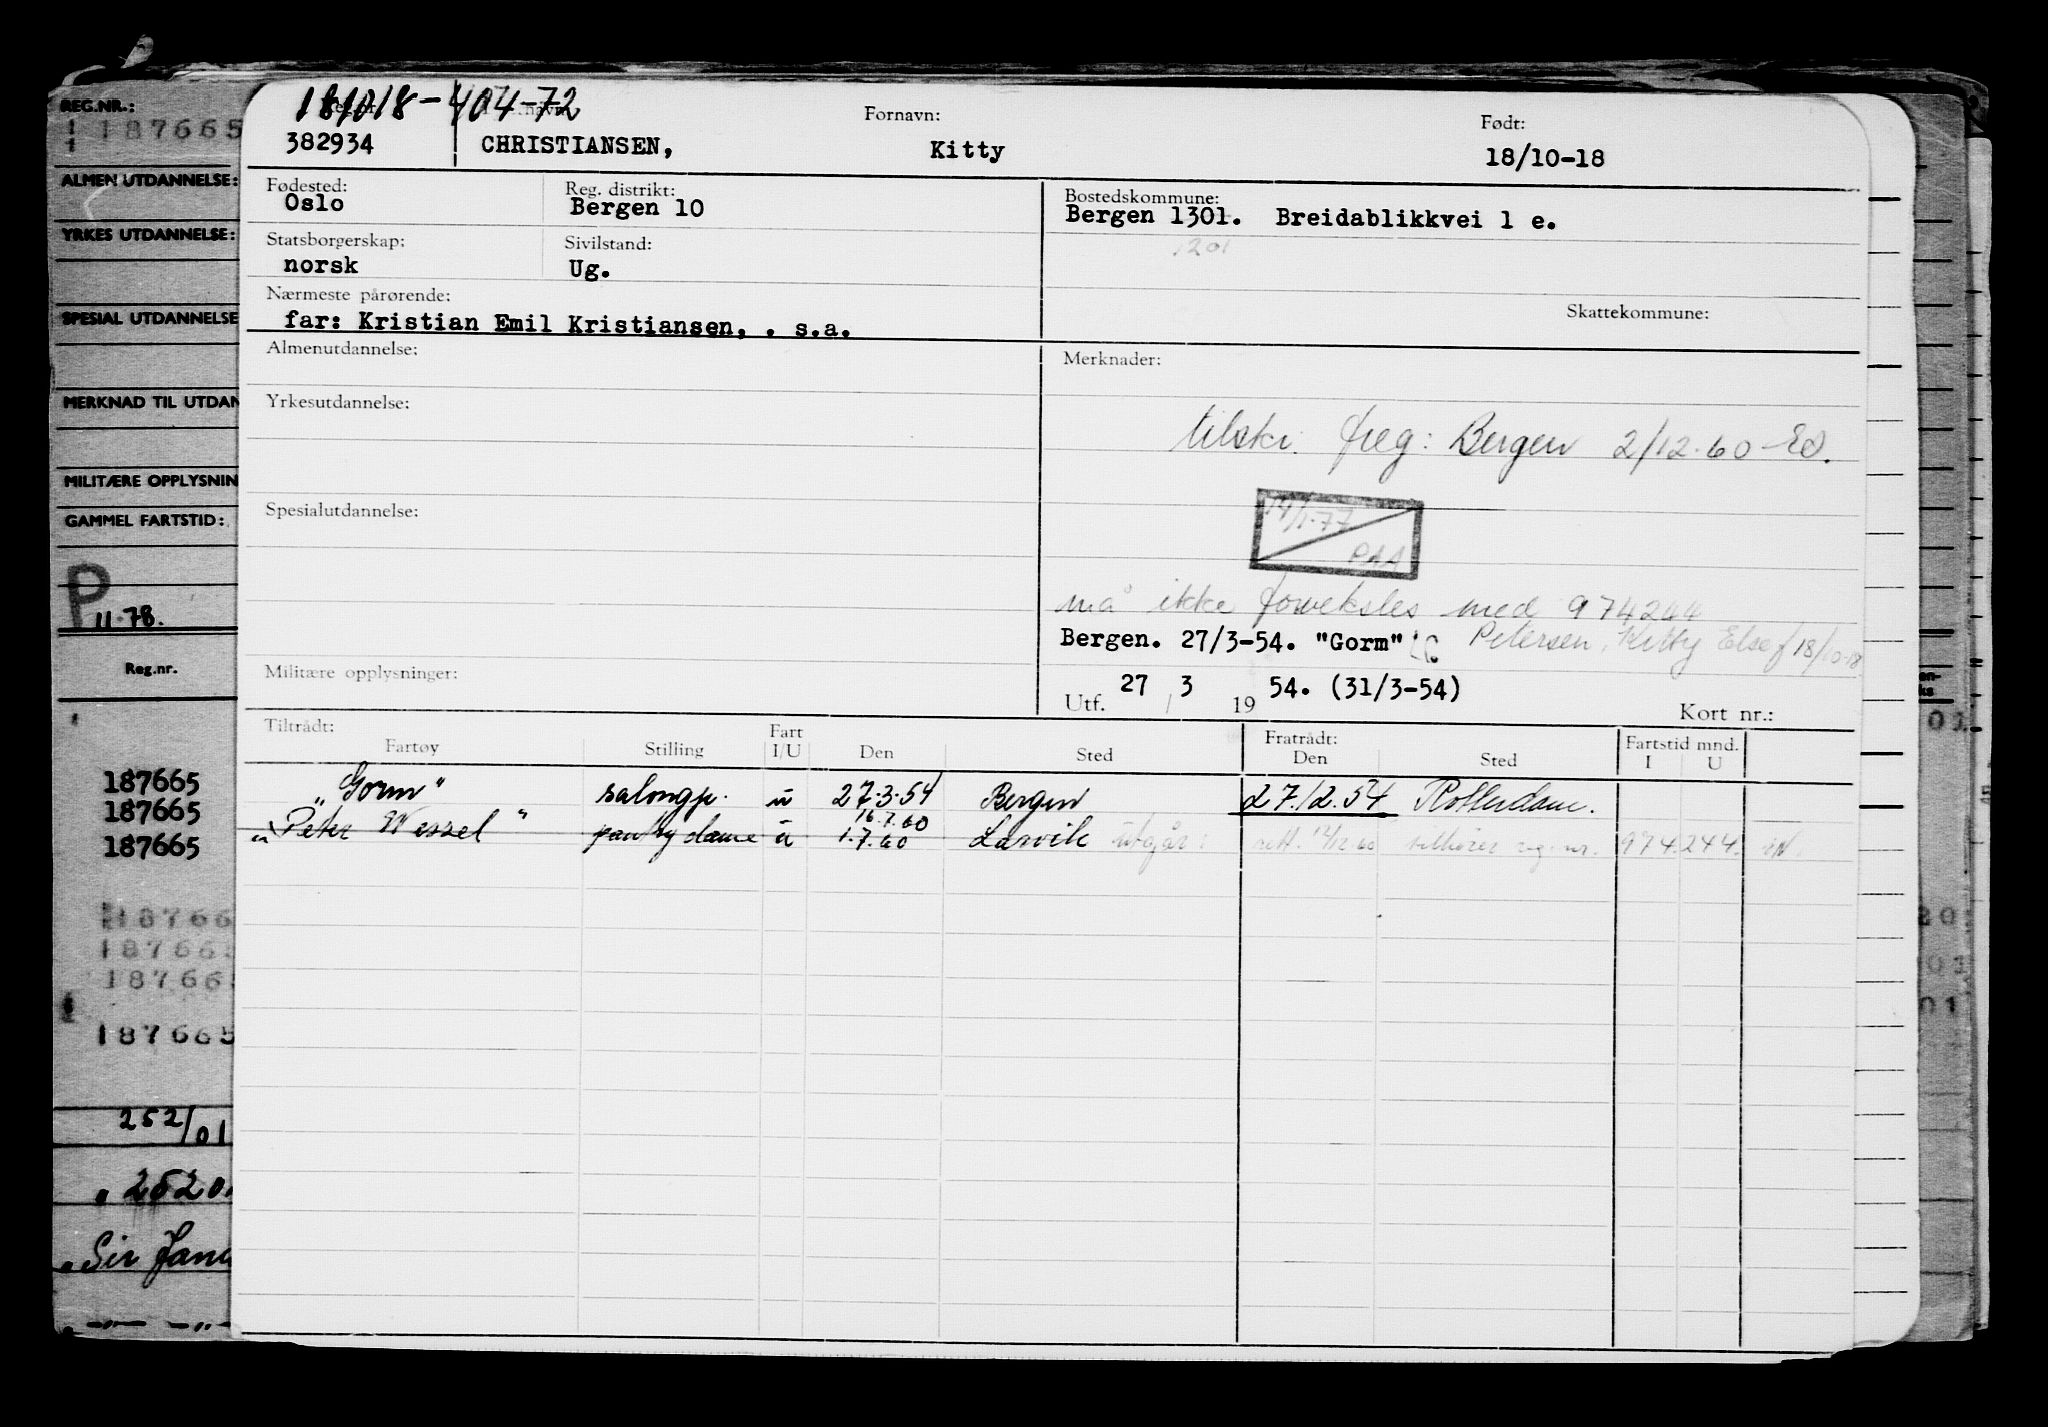 REG.NR.:
187665
ALMEN UTDANNELSE:
YRKES UTDANNELSE:
SPESIAL UTDANNELSE
MERKNAD TIL UTDAN
MILITÆRE OPPLYSNIN
GAMMEL FARTSTID:
P
11.78.
Reg.nr.
187665
187665
187665
18766
187665
18766
187665
252/01
252 01
Sir Jam
181018-404-72
382934
CHRISTIANSEN,
Fornavn:
Kitty
Født:
18/10-18
Fødested:
Oslo
Reg. distrikt:
Bergen 10
Bostedskommune:
Bergen 1301. Breidablikkvei 1 e.
1201
Statsborgerskap:
norsk
Sivilstand:
Ug.
Nærmeste pårørende:
far: Kristian Emil Kristiansen, . s.a.
Skattekommune:
Almenutdannelse:
Merknader:
Yrkesutdannelse:
tilskr. freg: Bergen 2/12.60 Ed.
Spesialutdannelse:
14/1-77
PAA
må ikke forveksles med 974244
Petersen, Kitty Else f 18/10-18
Bergen. 27/3-54. "Gorm"
Militære opplysninger:
Utf. 27 / 3 19 54. (31/3-54)
Kort nr.:
Tiltrådt:
Fartøy Stilling Fart I/U Den Sted
Fratrådt:
Den Sted
Fartstid mnd.
I U
"Gorm" salongp. u 27.3.54 Bergen 27.12.54 Rotterdam.
16.7.60
"Peter Wessel" pantry dame u 1.7.60 Larvik utgår: rett. 12/12.60 tilhører reg. nr. 974.244.
20
01
01